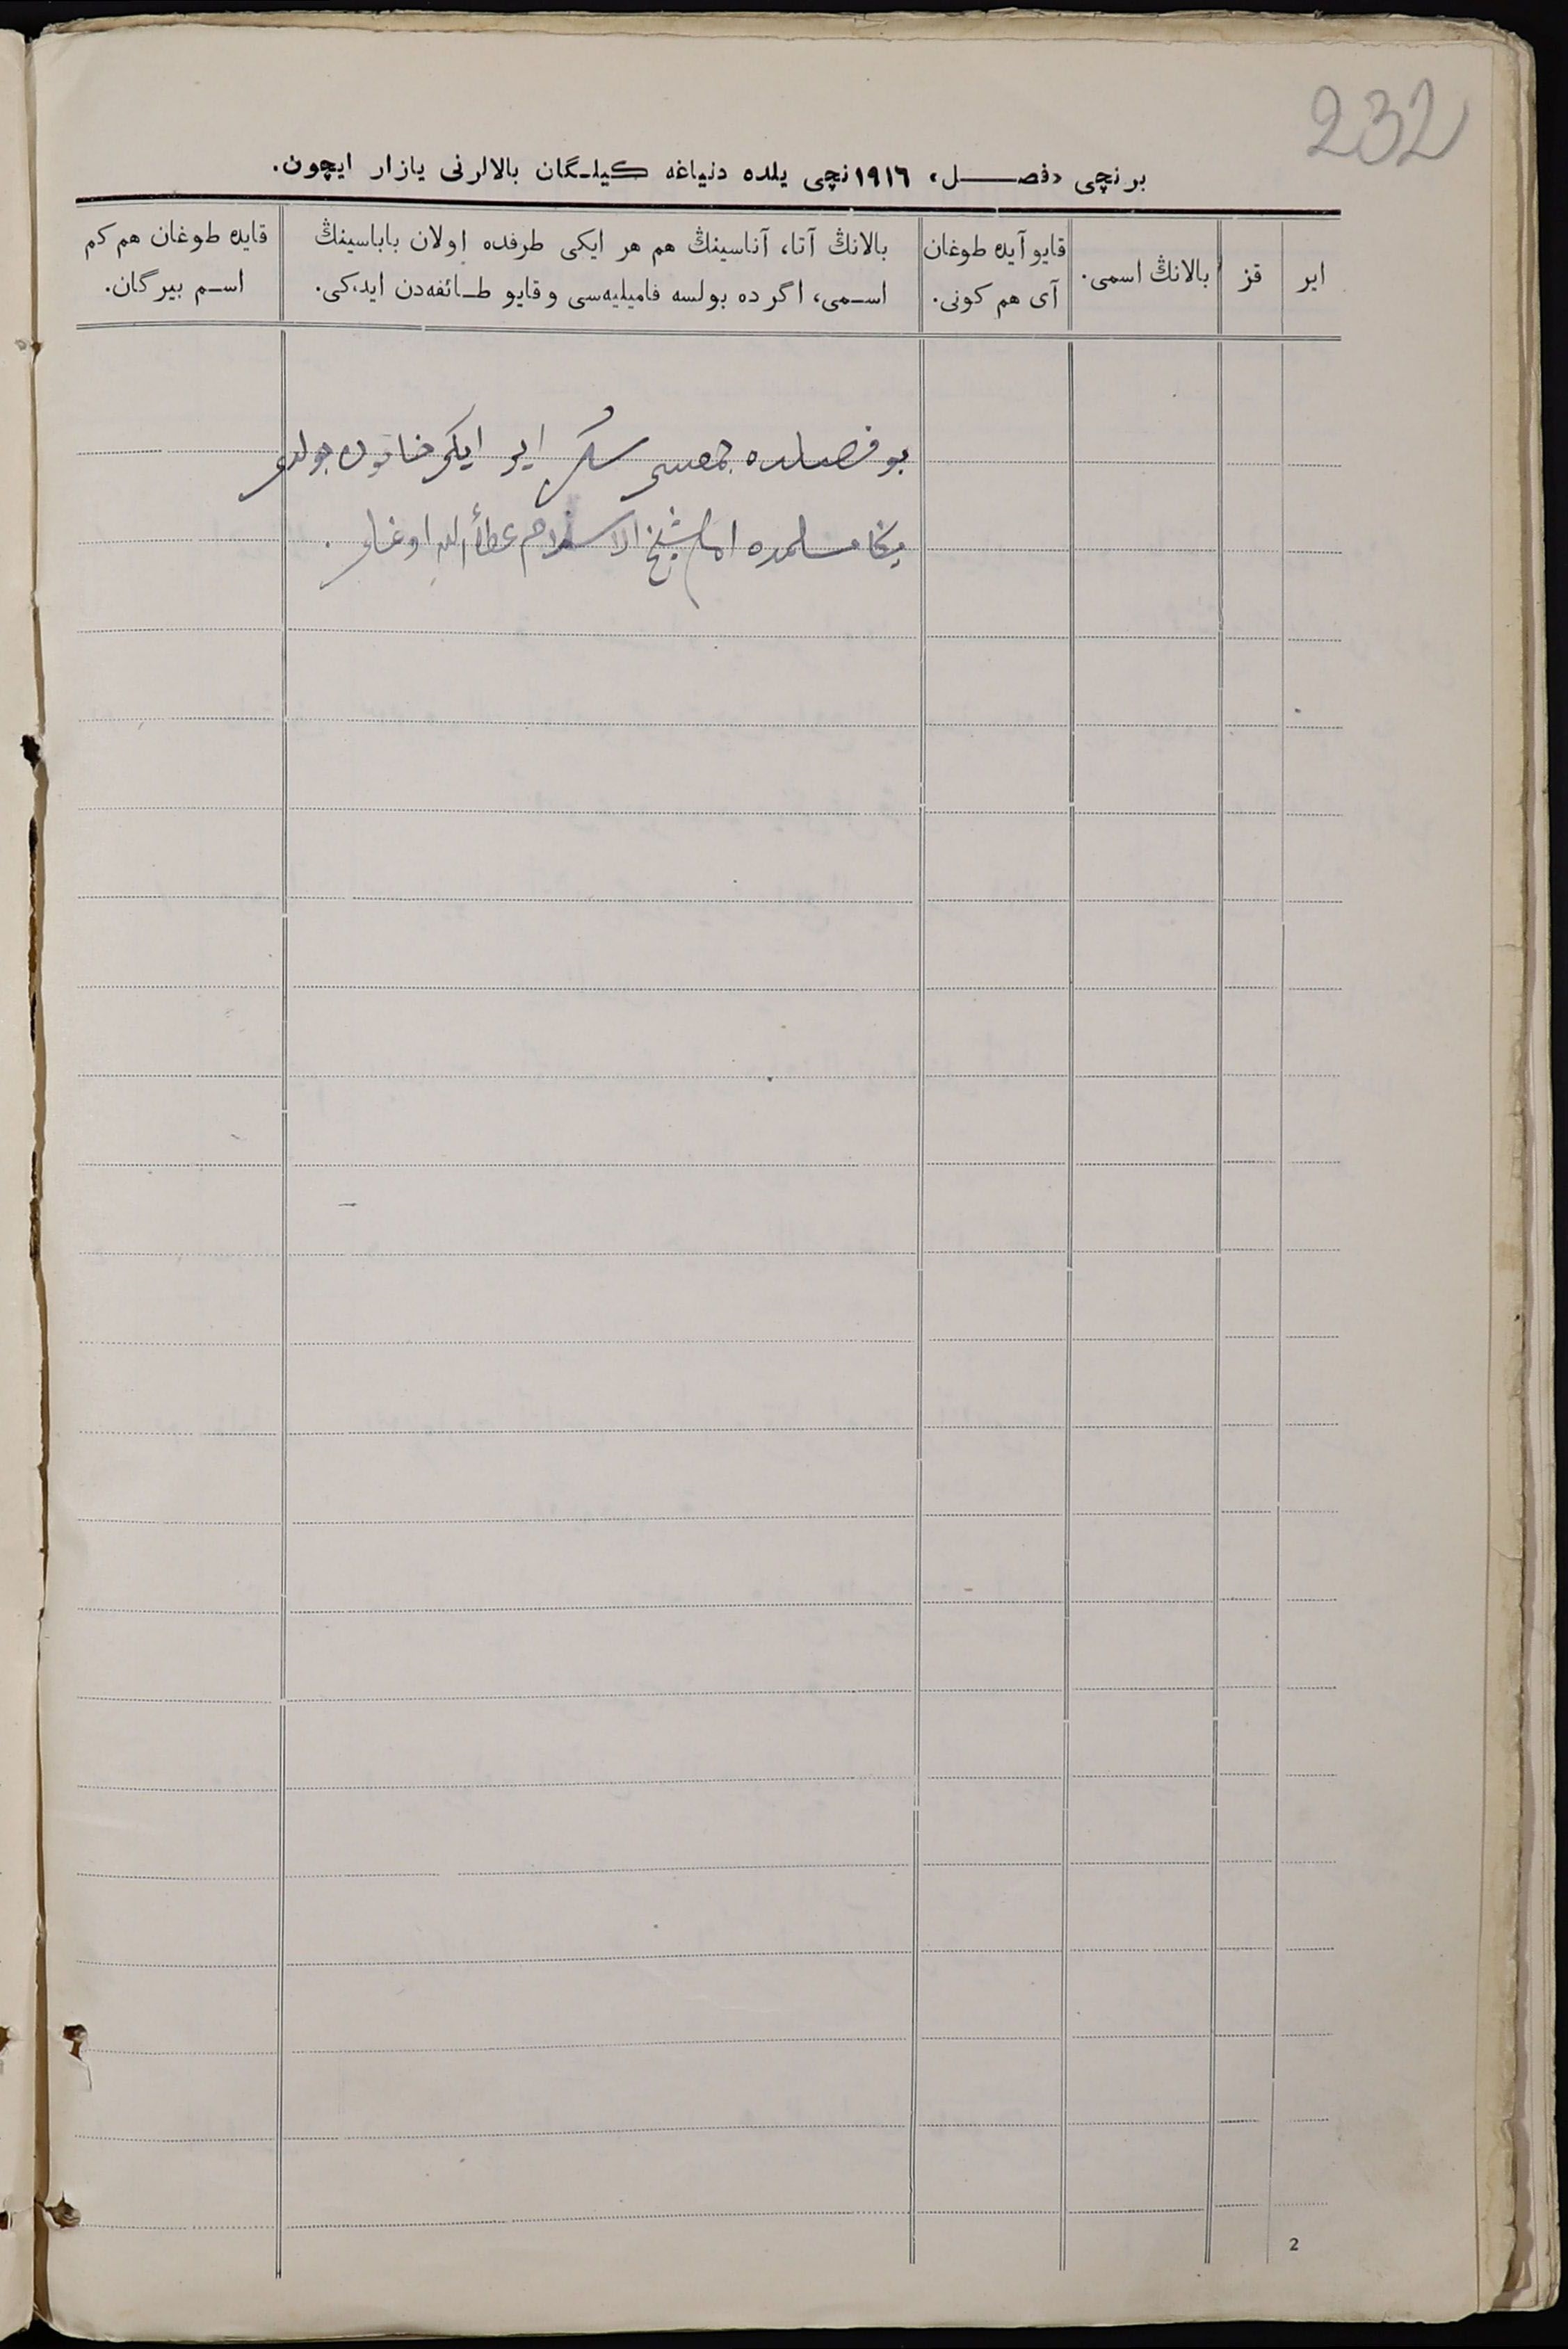 232
برنچی «فصل» ١٩١٦ نچی یلده دنیاغه کیلگان بالالرنی یازار ایچون.
ایر
قز
بالانڭ اسمی.
قایو آیده طوغان
آی هم کونی.
بالانڭ آتا، آناسینڭ هم هر ایکی طرفده اولان باباسینڭ
اسمی، اگر ده بولسه فامیلیه‌سی و قایو طائفه‌دن ایدکی.
قایده طوغان هم کم
اسم بیرگان.
بو فصلده جمعسی سکز ایر ایکی خاتون بولدی
امام شیخ الاسلام عطاء الله اوغلی.
2